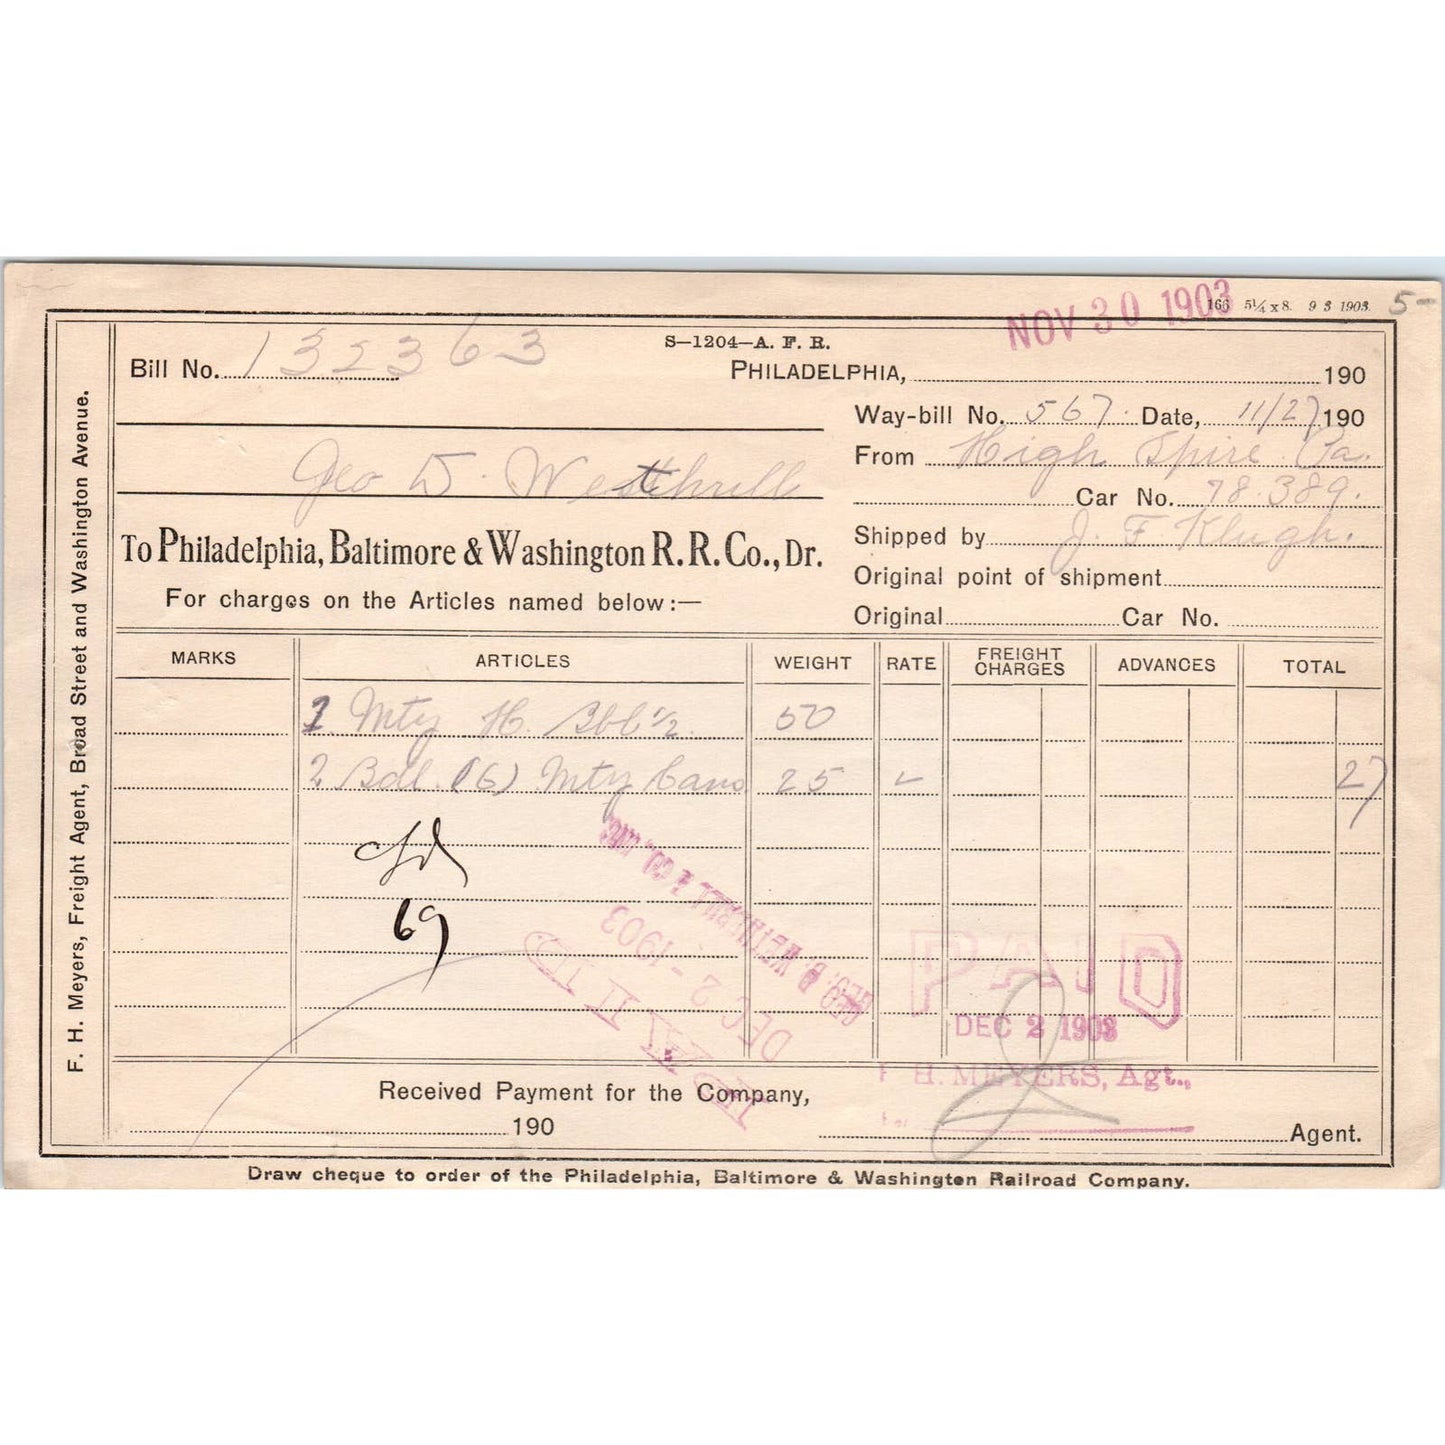 NOV 30 1903
166 5¼ x 8. 9 3 1903. 5-
S–1204–A. F. R.
Bill No. 132363
PHILADELPHIA, 190
Way-bill No. 567. Date, 11/27 190
From High Spire Pa.
Geo D. Wetthrell
Car No. 78.389.
To Philadelphia, Baltimore & Washington R. R. Co., Dr.
Shipped by J. F. Klugh.
Original point of shipment
For charges on the Articles named below:—
Original Car No.
MARKS ARTICLES WEIGHT RATE FREIGHT CHARGES ADVANCES TOTAL
1 Mty H. Bbl ½. 50
2 Bdl. (6) Mty Cans 25 27
69
GEO. D. WETHERILL & CO. INC.
DEC 2 - 1903
PAID
DEC 2 1903
H. MEYERS, Agt.,
Received Payment for the Company,
190
Agent.
Draw cheque to order of the Philadelphia, Baltimore & Washington Railroad Company.
F. H. Meyers, Freight Agent, Broad Street and Washington Avenue.